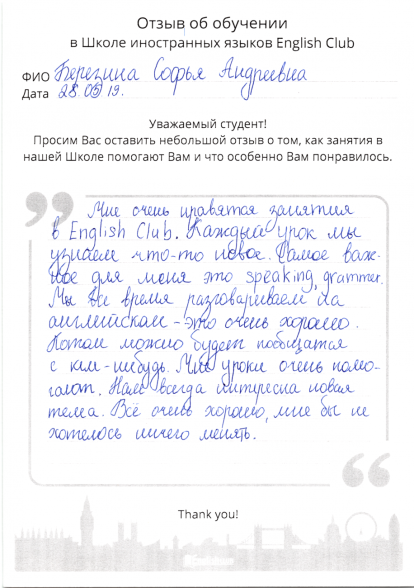 Отзыв об обучении
в Школе иностранных языков English Club
ФИО Березина Софья Андреевна
Дата 28.05 19.
Уважаемый студент!
Просим Вас оставить небольшой отзыв о том, как занятия в
нашей Школе помогают Вам и что особенно Вам понравилось.
Мне очень нравятся занятия
в English Club. Каждый урок мы
узнаем что-то новое. Самое важ-
ное для меня это speaking, grammer.
Мы все время разговариваем на
английском - это очень хорошо.
Потом можно будет пообщатся
с кем-нибудь. Мне уроки очень помо-
гают. Нам всегда интересна новая
тема. Всё очень хорошо, мне бы не
хотелось ничего менять.
Thank you!